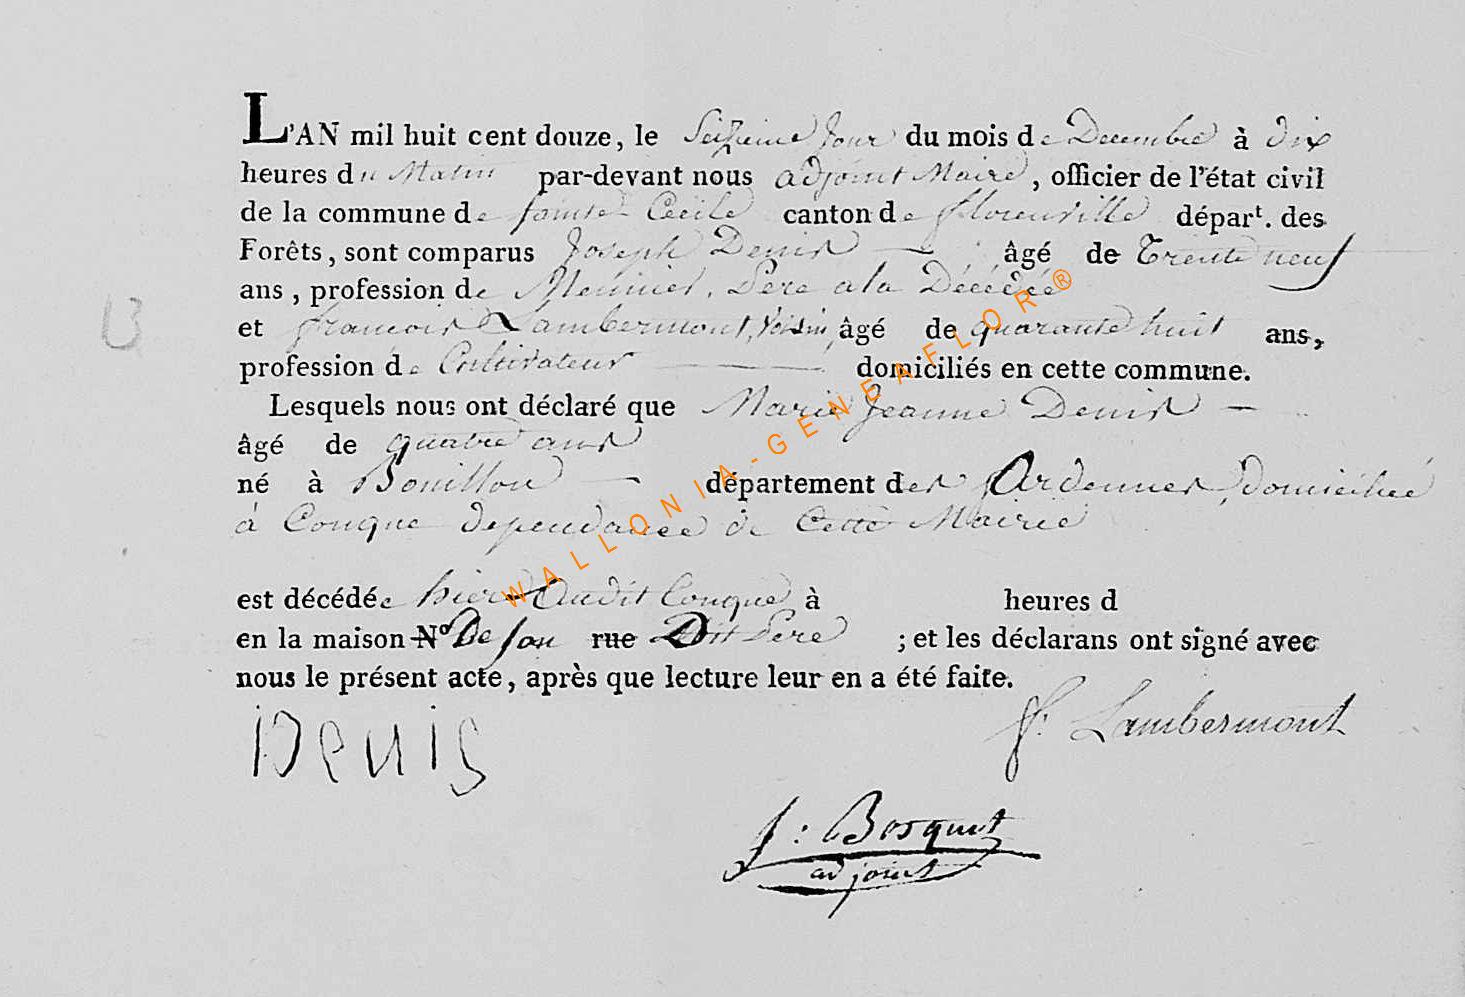 L'AN mil huit cent douze, le Seizieme Jour du mois de Decembre à dix
heures du Matin par-devant nous adjoint Maire, officier de l'état civil
de la commune de Sainte Cecile canton de florenville départ. des
Forêts, sont comparus Joseph Denis âgé de Trente neuf
ans, profession de Meunier, Pere a la Décédée
13
et francois Lambermont, Voisin, âgé de quarante huit ans,
profession de Cultivateur domiciliés en cette commune.
Lesquels nous ont déclaré que Marie Jeanne Denis
âgé de quatre ans
né à Bouillon département des Ardennes, domiciliée
à Conque dependance de Cette Mairie
est décédée hier Audit Conque à heures d
en la maison No De Son rue Dit Pere ; et les déclarans ont signé avec
nous le présent acte, après que lecture leur en a été faite.
Denis
f. Lambermont
J: Bosquet
adjoint
WALLONIA-GENEAFLOR®